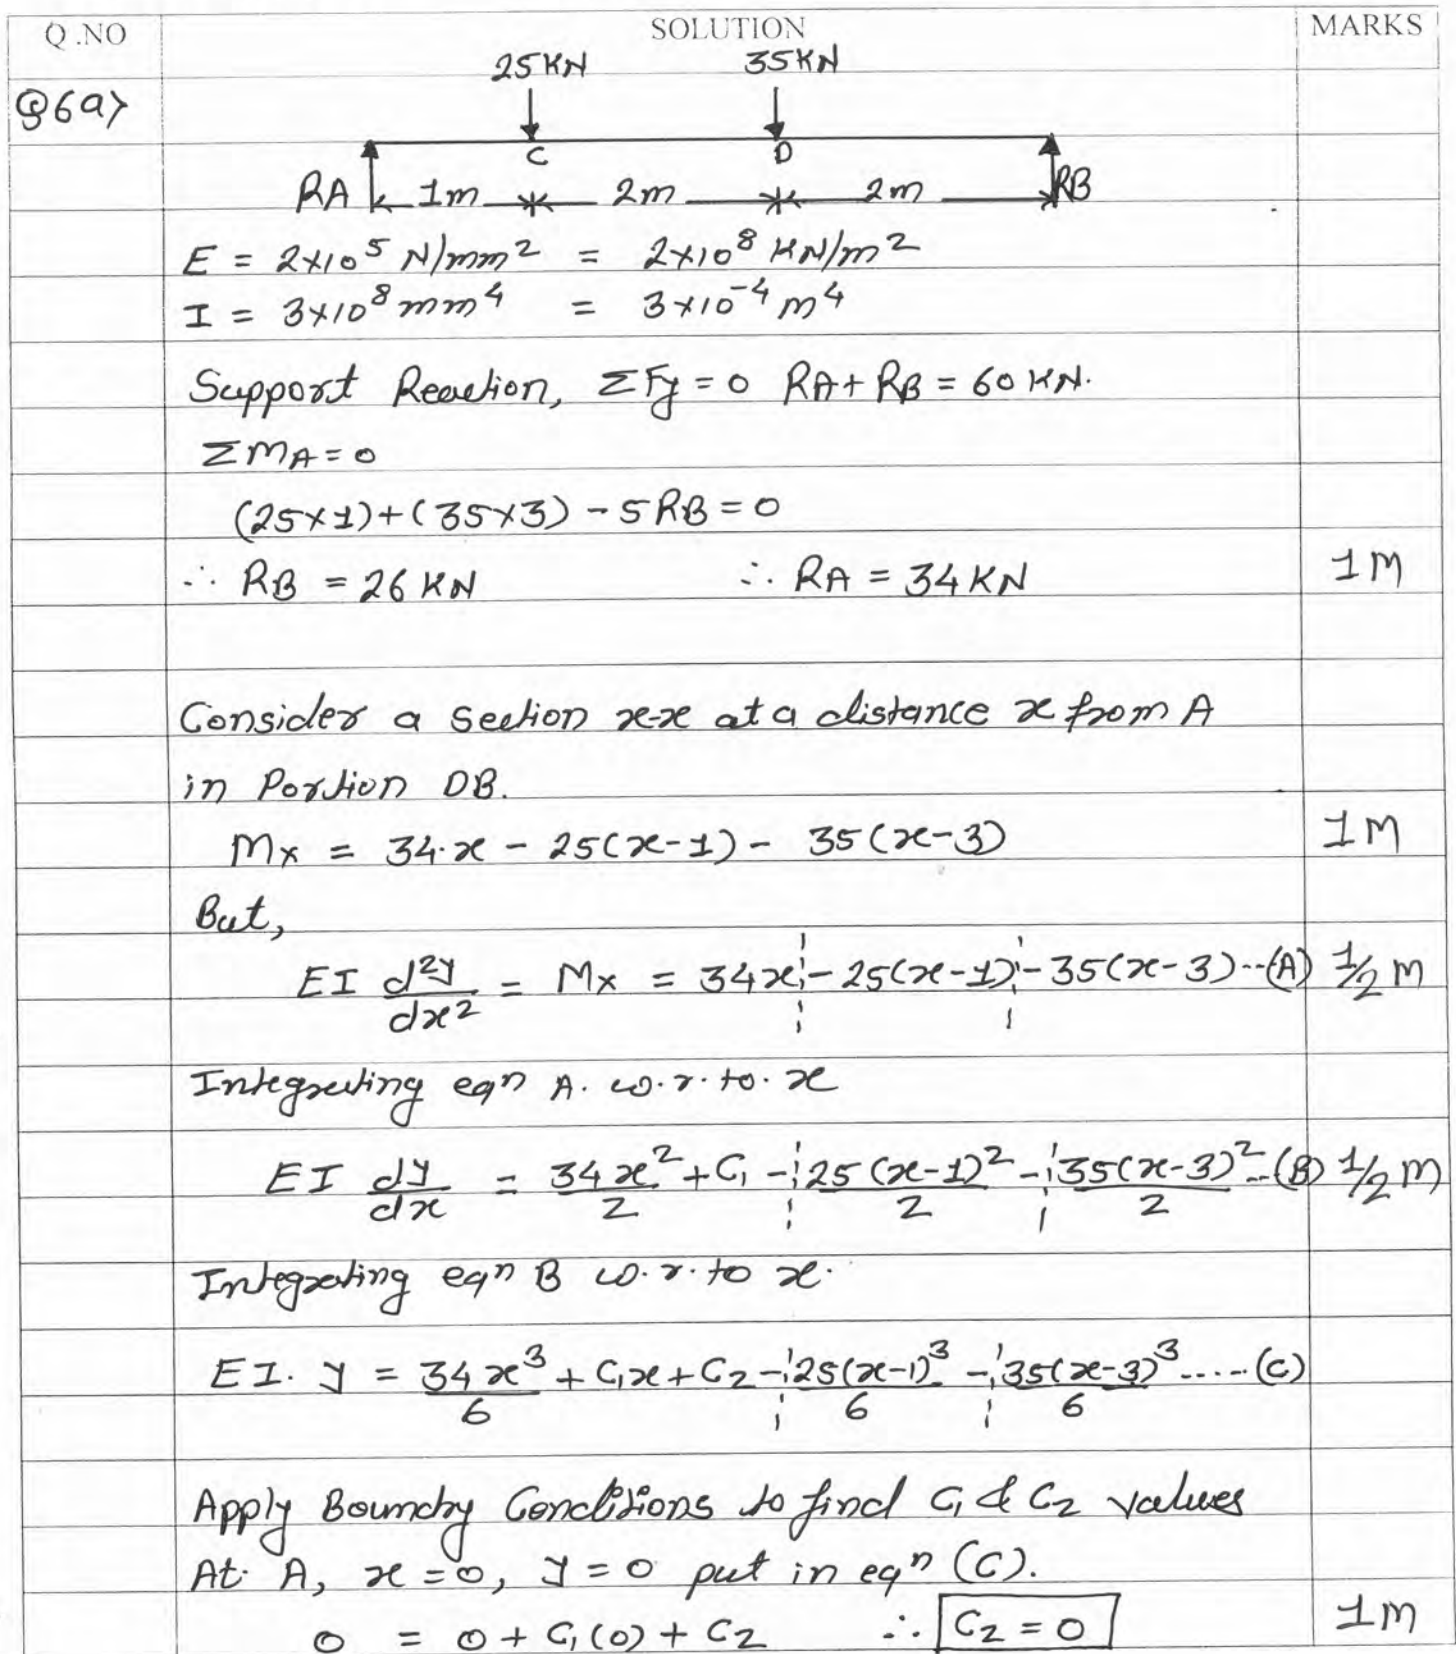 Q.NO SOLUTION MARKS
25KN 35KN
Q6a>
C D
RA 1m 2m 2m RB
E = 2×10^5 N/mm^2 = 2×10^8 KN/m^2
I = 3×10^8 mm^4 = 3×10^-4 m^4
Support Reaction, ΣFy = 0 RA + RB = 60 KN.
ΣMA = 0
(25×1)+(35×3) - 5RB = 0
∴ RB = 26 KN ∴ RA = 34 KN 1M
Consider a section x-x at a distance x from A
in Portion DB.
Mx = 34·x - 25(x-1) - 35(x-3) 1M
But,
EI d^2y/dx^2 = Mx = 34x ¦- 25(x-1) ¦- 35(x-3) --(A) 1/2 M
Integrating eqn A. w.r.to. x
EI dy/dx = 34x^2/2 + C1 -¦ 25(x-1)^2/2 -¦ 35(x-3)^2/2 --(B) 1/2 M
Integrating eqn B w.r.to x.
EI. y = 34x^3/6 + C1x + C2 -¦ 25(x-1)^3/6 -¦ 35(x-3)^3/6 .....(C)
Apply Boundry Conditions to find C1 & C2 values
At A, x = 0, y = 0 put in eqn (C).
0 = 0 + C1(0) + C2 ∴ C2 = 0 1M